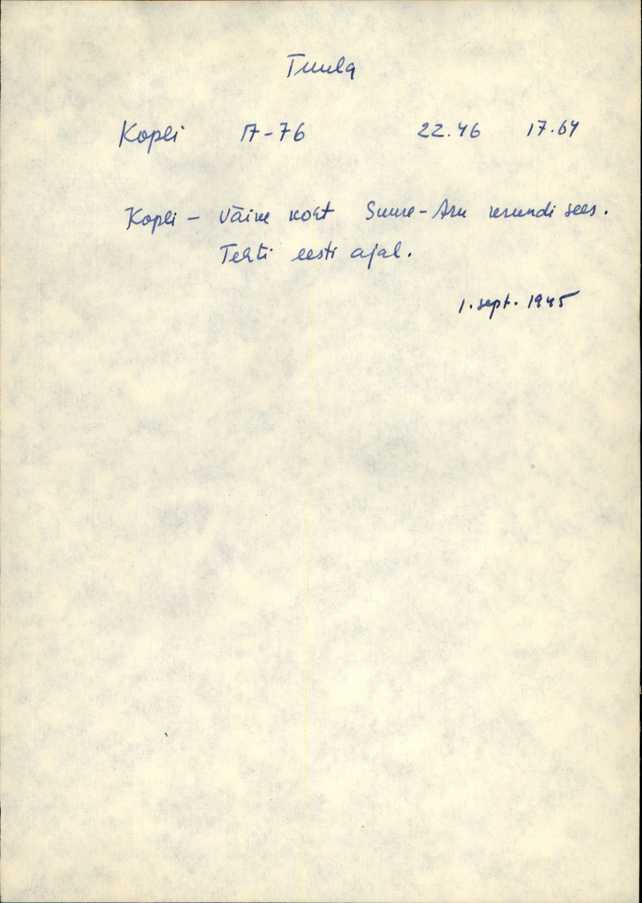 Tuula
Kopli 17-76 22.46 17.64
Kopli - Väike koht Suure-Aru krundi sees.
Tehti eesti ajal.
1. sept. 1945